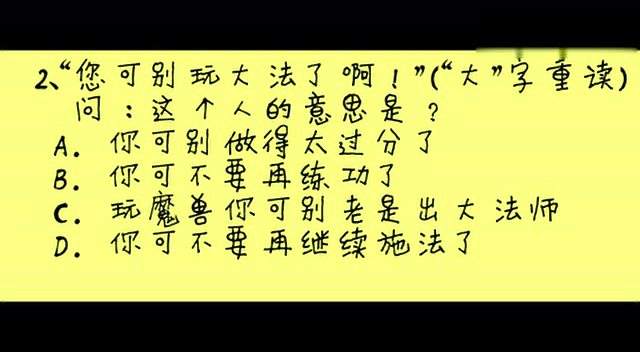 2、“您可别玩大法了啊！”(“大”字重读)
问：这个人的意思是？
A. 你可别做得太过分了
B. 你可不要再练功了
C. 玩魔兽你可别老是出大法师
D. 你可不要再继续施法了